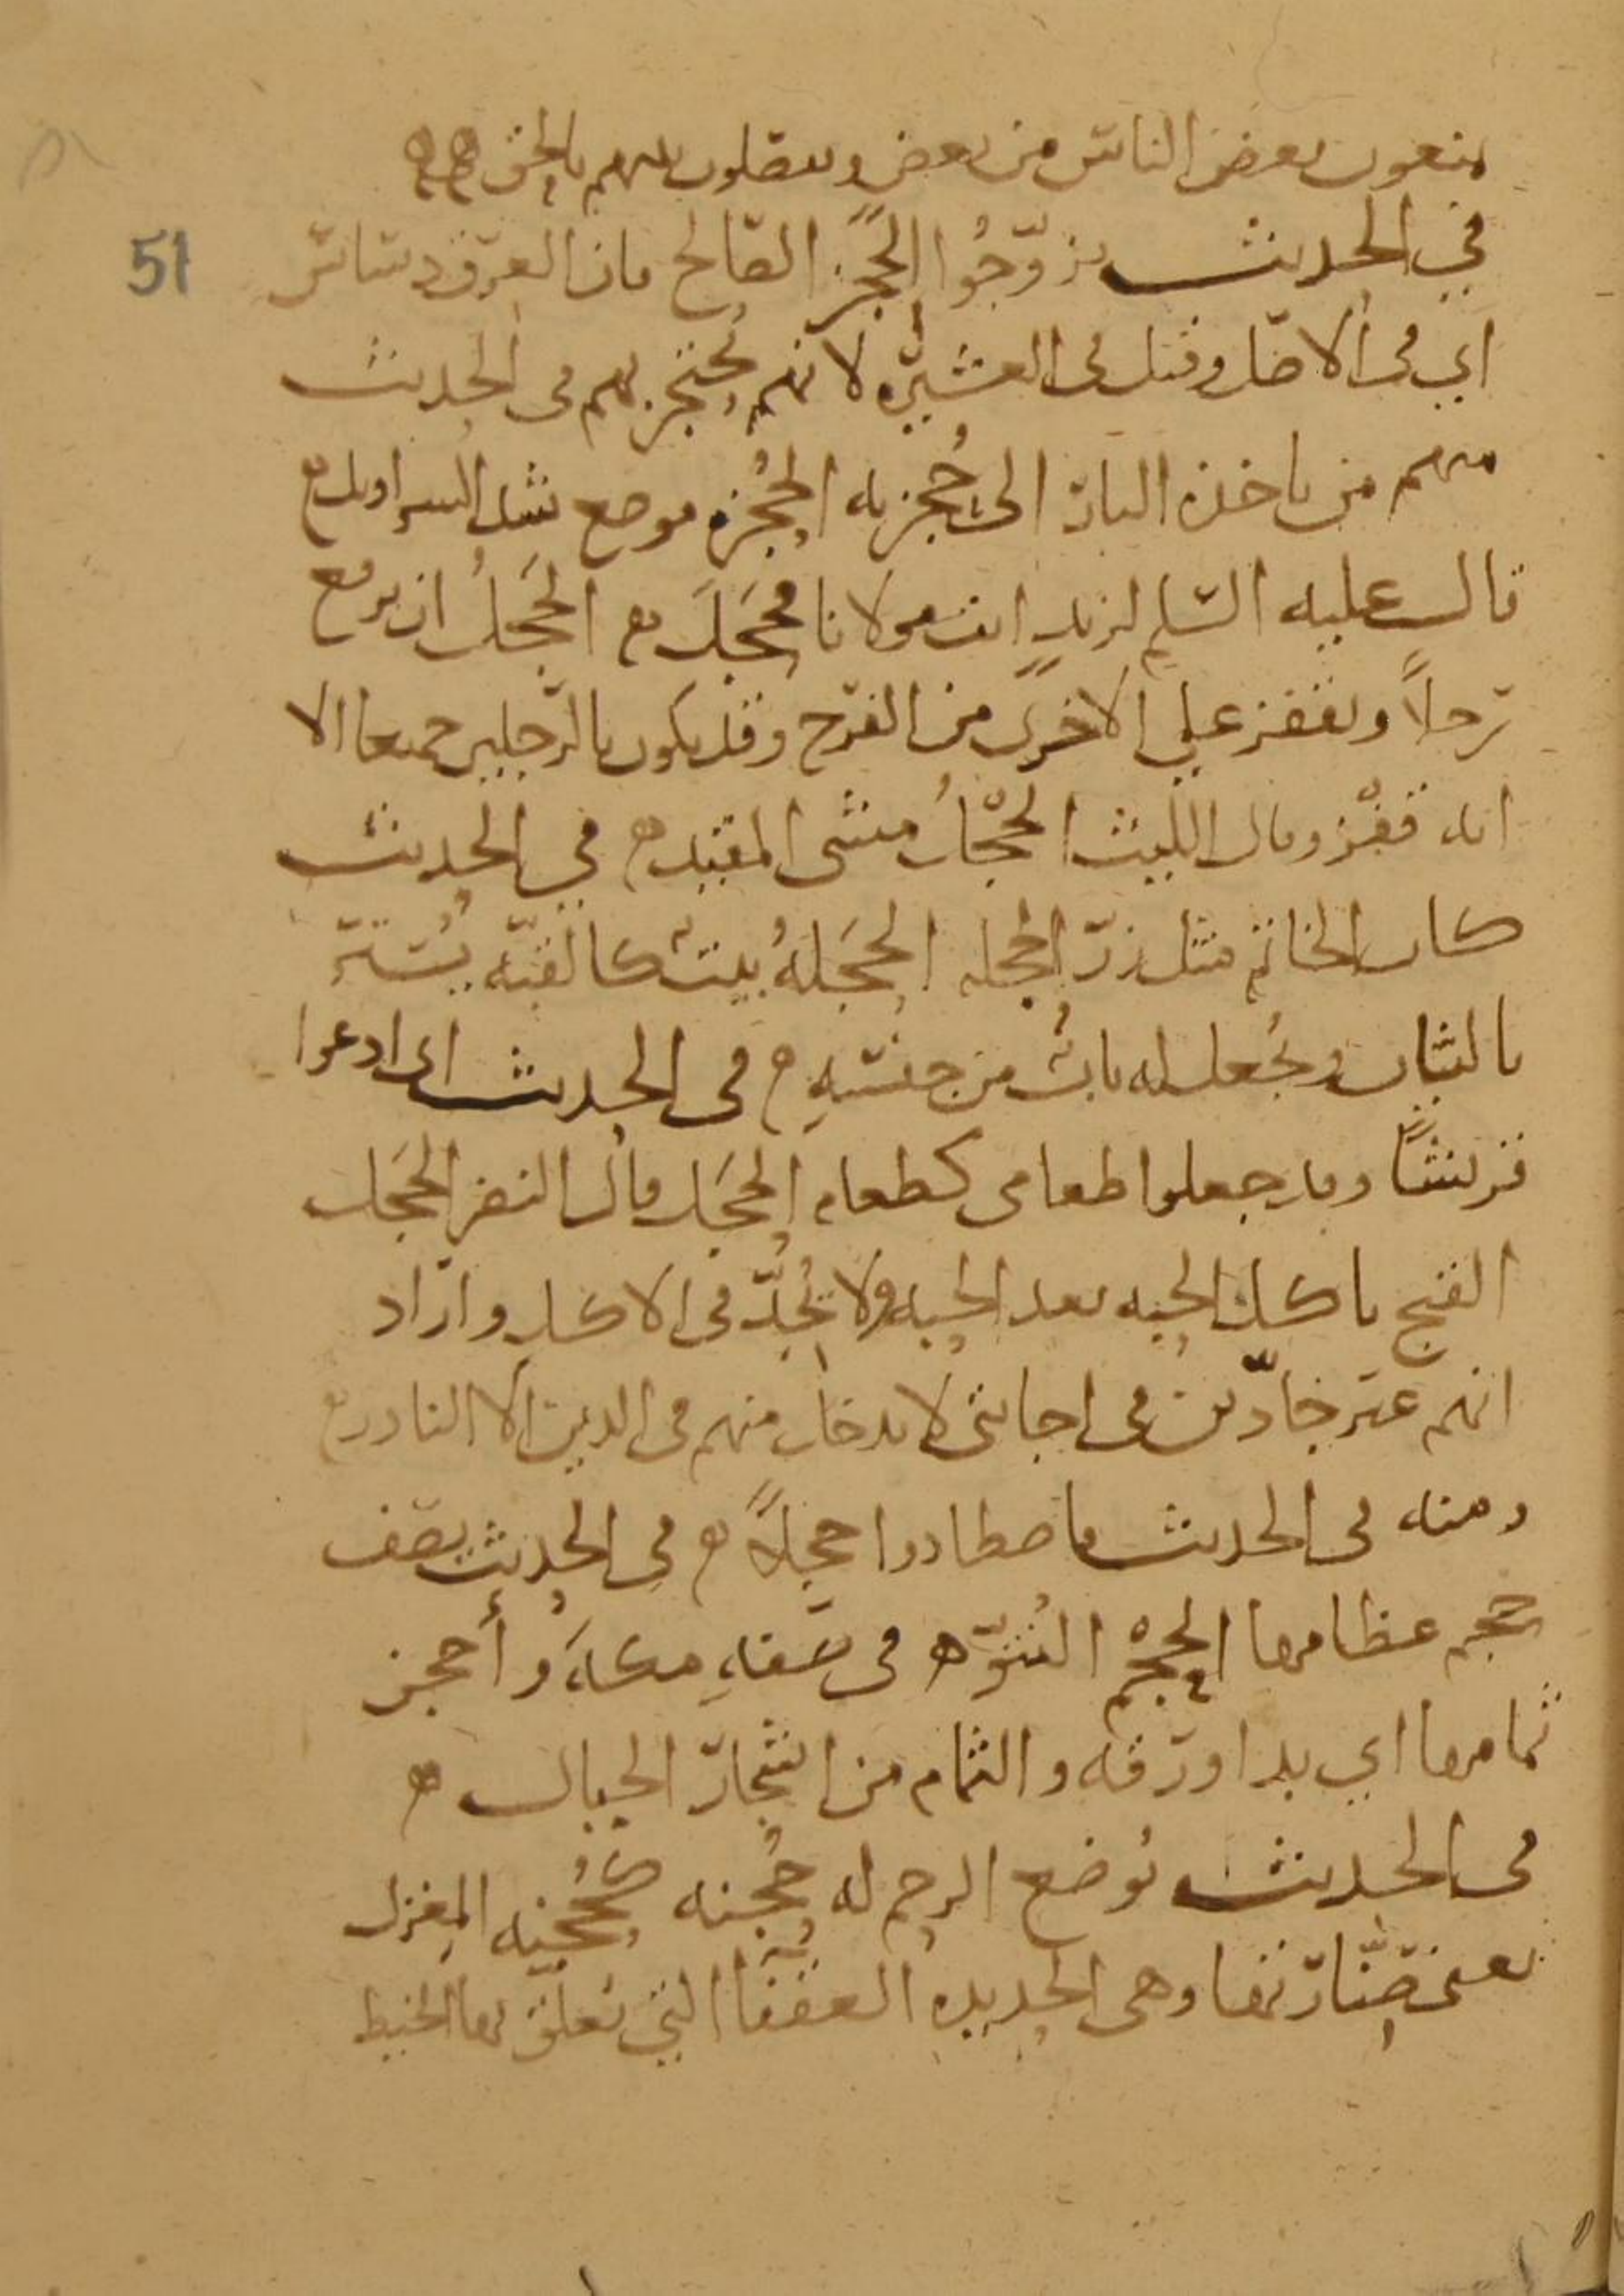 يمنعون بعض الناس من بعض ويفصلون بينهم بالحق هه
في الحديث تزوّجُوا في الحُجز الصالح فان العرق دساس
51
اي في الاصل وقيل في العشيره لانهم يُحتجز بهم في الحديث
منهم من تاخذه النار الى حُجزته الحُجزه موضع شد السراويل ه
قال عليه السلم لزيدٍ انت مولانا فحَجَلَ ه الحَجلُ ان يرفع
رجلاً ويقفز على الاخرى من الفرح وقد يكون بالرجلين جميعا الا
انه قفْز وقال الليث الحَجْلُ مشى المقيد ه في الحديث
كان الخاتم مثل زرّ الحجله الحَجَلهُ بيتٌ كالقبّه يُستر
بالثياب ويُجعل له بابٌ من جنسِهِ ه في الحديث انى ادعوا
قريشًا وقد جعلوا طعامى كطعام الحَجَل قال النضر الحَجَل
القبج ياكل الحبه بعد الحبه ولا يُجدّ في الاكل واراد
انهم غير جادّين فى اجابتى لا يدخل منهم في الدين الا النادر ه
ومنه في الحديث فاصطادوا حجلاً ه في الحديث يصف
حجم عظامها الحجْم النُتوّ ه في صفةِ مكةَ وأحجن
ثمامها اي بدا ورقه والثمام من اشجار الجبال ه
في الحديث تُوضع الرحم له حُجنه كحُجنه المِغزل
يعنى صِنّارتها وهى الحديده العقفاُ التي يُعلق بها الخيط